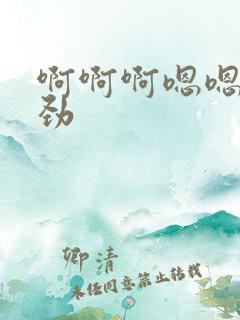 啊啊啊嗯嗯
劲
卿清
未经同意禁止转载